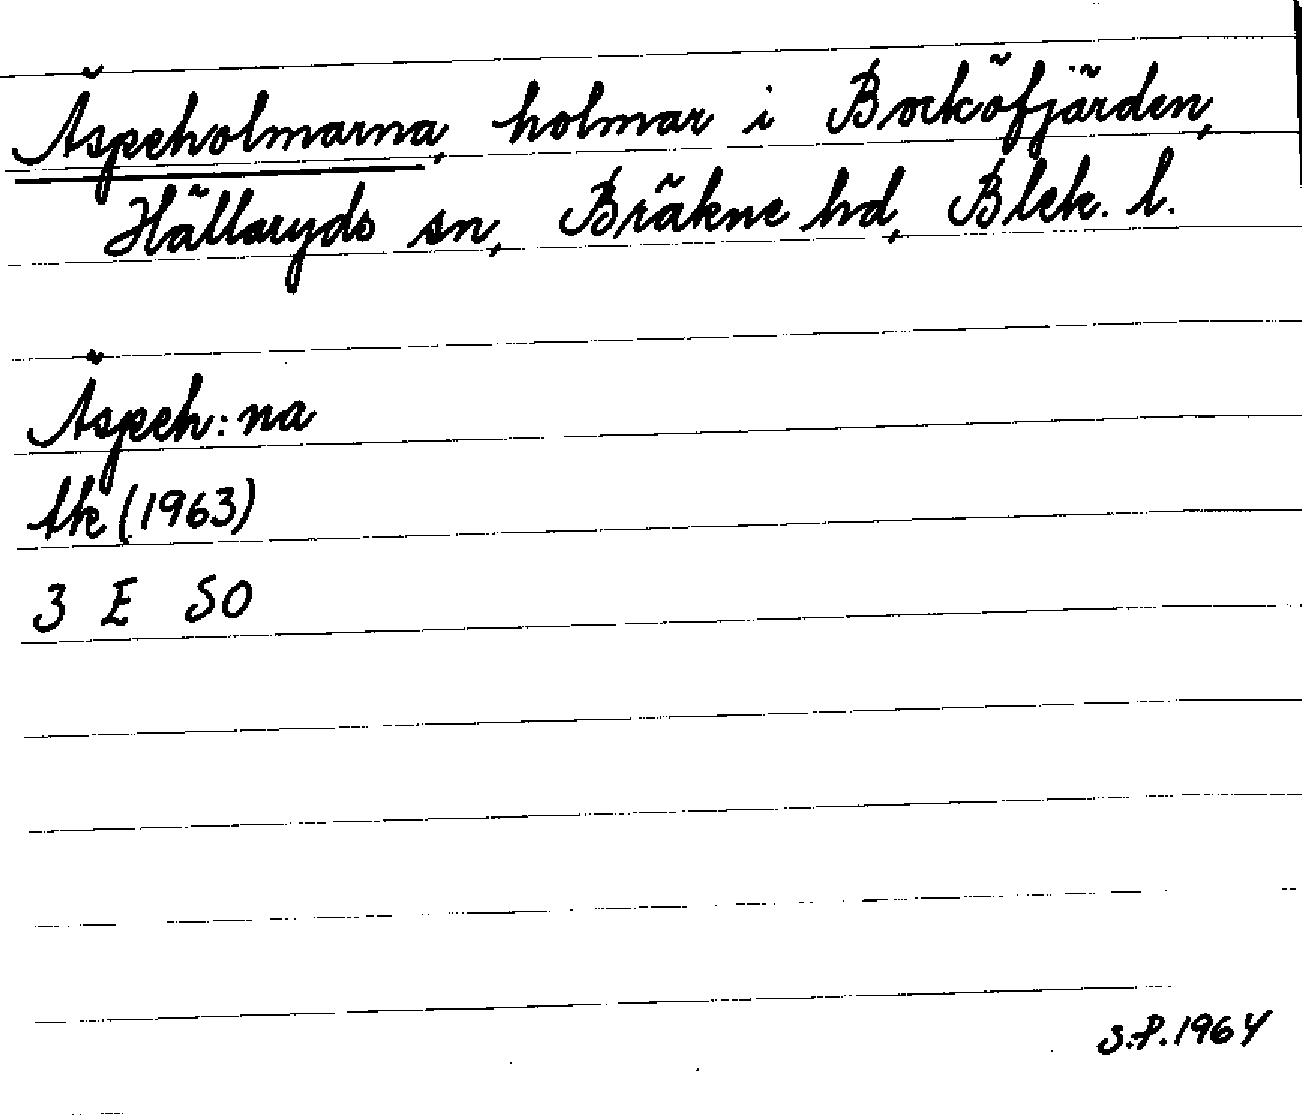 Äspeholmarna, holmar i Bocköfjärden,
Hällaryds sn, Bräkne hd, Blek. l.
Äspeh:na
tk (1963)
3 E SO
S.P. 1964